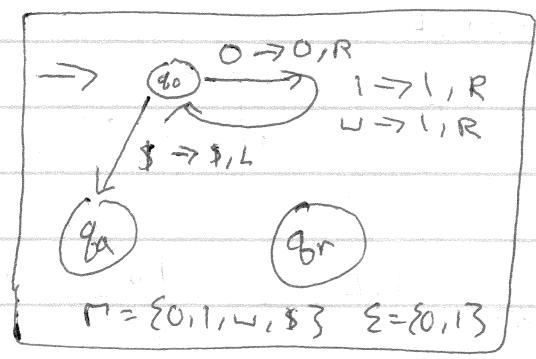 0 → 0, R
q0
1 → 1, R
⊔ → 1, R
$ → $, L
qa
qr
Γ = {0, 1, ⊔, $} Σ = {0, 1}